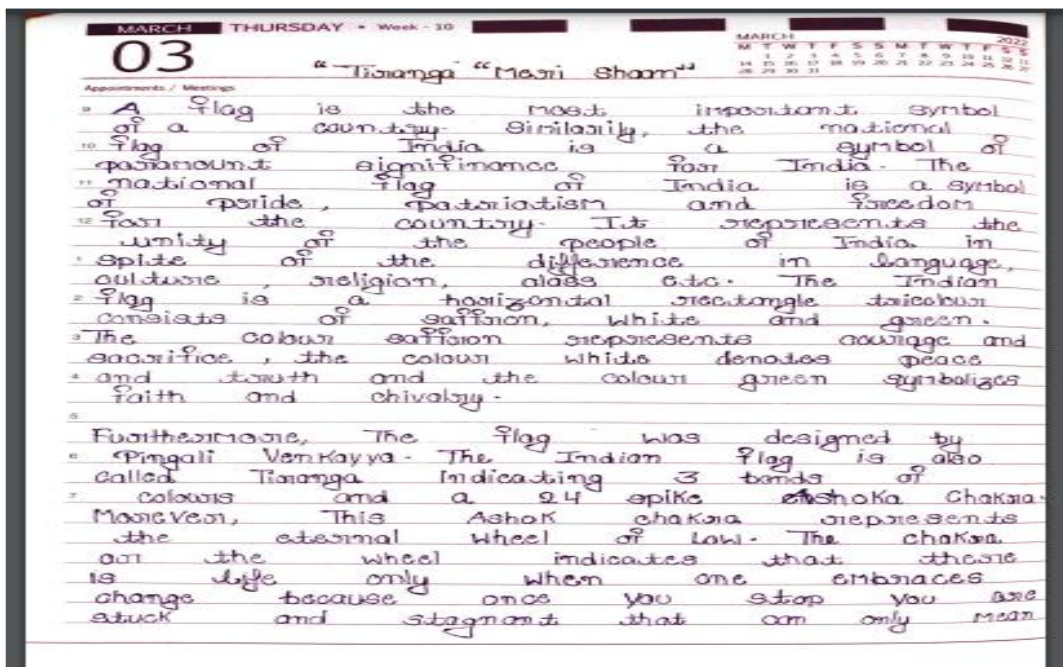 MARCH THURSDAY • Week - 10
03
MARCH 2022
M T W T F S S M T W T F S S
1 2 3 4 5 6 7 8 9 10 11 12 13
14 15 16 17 18 19 20 21 22 23 24 25 26 27
28 29 30 31
" Tiranga " Meri Shaan"
Appointments / Meetings
9 A flag is the most important symbol
of a country. Similarily, the national
10 flag of India is a symbol of
paramount signifinance for India. The
11 national flag of India is a symbol
of pride, patriotism and freedom
12 for the country. It represents the
unity of the people of India in
1 spite of the difference in language,
culture, religion, class etc. The Indian
2 flag is a horizontal rectangle tricolour
consists of saffron, white and green.
3 The colour saffron represents courage and
sacrifice, the colour white denotes peace
4 and truth and the colour green symbolizes
faith and chivalry.
5
Furthermore, The flag was designed by
6 Pingali Venkayya. The Indian flag is also
called Tiranga indicating 3 bands of
7 colours and a 24 spike Ashoka Chakra.
Moreever, This Ashok chakra represents
the eternal wheel of law. The chakra
or the wheel indicates that there
is life only when one embraces
change because once you stop you are
stuck and stagnant that can only mean